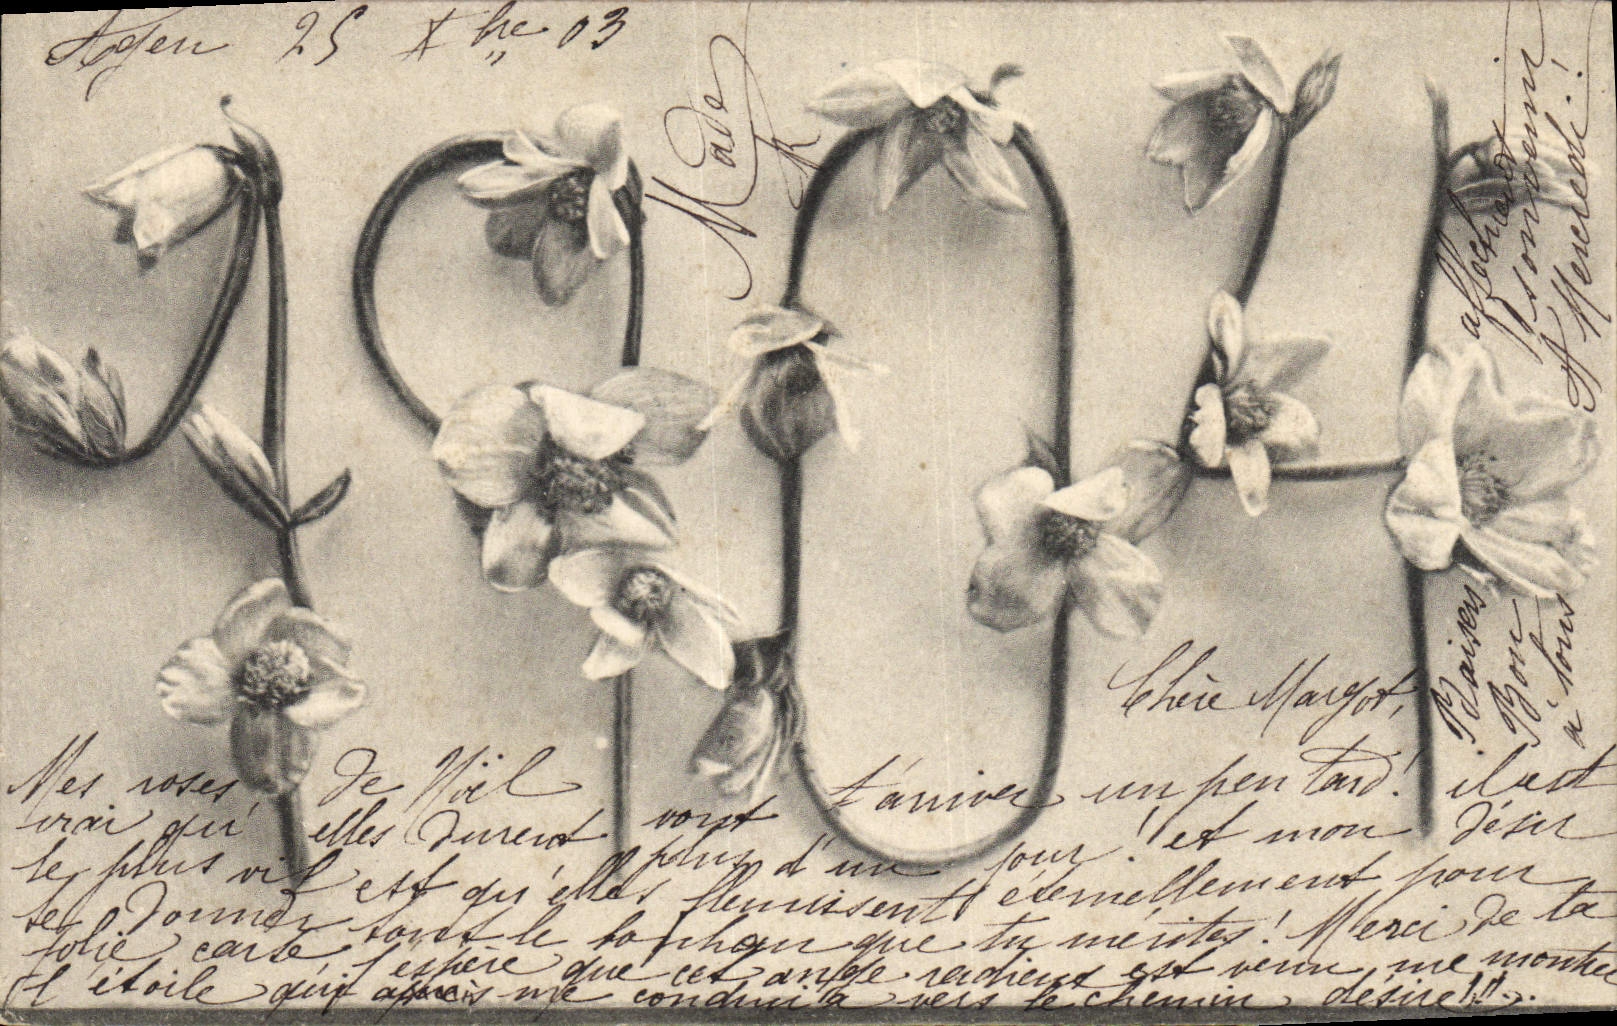 Agen 25 Xbre 03
1904
Chère Margot,
Mes roses de Noël vont t'arriver un peu tard! il est
vrai qu'elles durent plus d'un jour! et mon désir
le plus vif est qu'elles fleurissent éternellement pour
te donner tout le bonheur que tu mérites! Merci de ta
jolie carte j'espère que cet ange radieux est venu me montrer
l'étoile qui me conduira vers le chemin désiré!!!...
Baisers
Bon
à tous
affectueux
souvenir
A Mercredi!
Mado